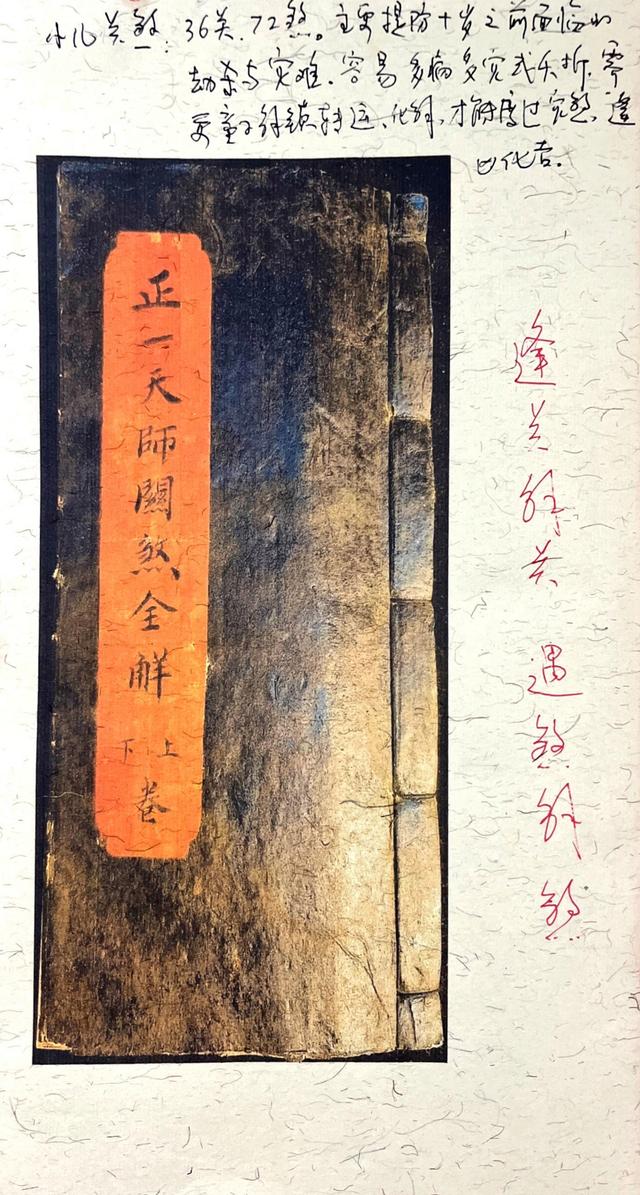 小儿关煞：36关、72煞。主要提防十岁之前面临的
劫杀与灾难。容易多病多灾或夭折，需
要童子解锁转运、化解，才能度过灾煞，逢
凶化吉。
正一天師關煞全解
上下
卷
逢关解关 遇煞解煞